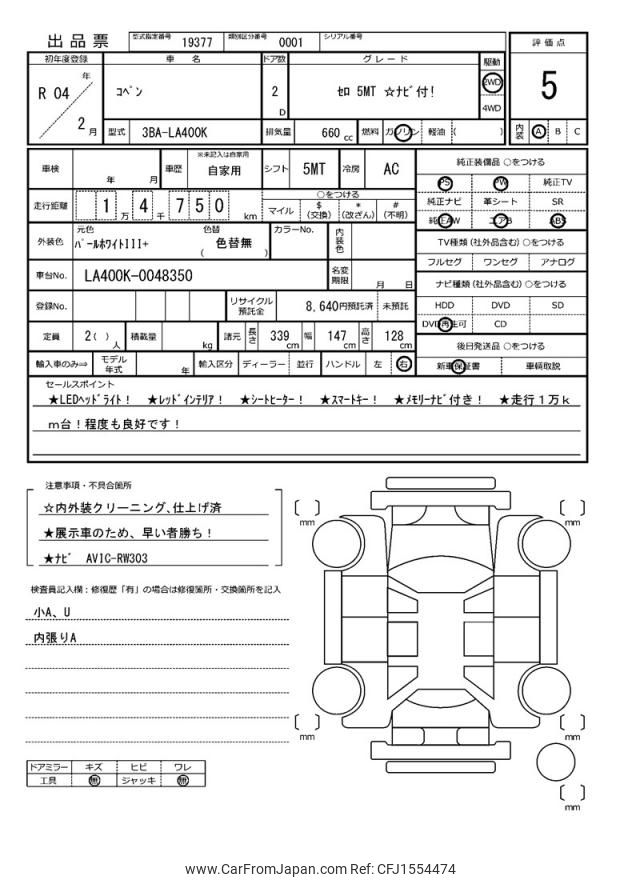 出品票 型式指定番号 19377 類別区分番号 0001 シリアル番号
評価点
5
内装 A B C
初年度登録 車名 ドア数 グレード 駆動
R 04 年 2 月 コペン 2 D セロ 5MT ☆ナビ付! 2WD 4WD
型式 3BA-LA400K 排気量 660 cc 燃料 ガソリン 軽油 ( )
車検 年 月 車歴 ※未記入は自家用 自家用 シフト 5MT 冷房 AC
走行距離 1 万 4 千 7 5 0 km ○をつける
マイル $ (交換) * (改ざん) # (不明)
外装色 元色 パールホワイトIII+ 色替 ( 色替無 ) カラーNo. 内装色
車台No. LA400K-0048350 名変期限 月 日
登録No. リサイクル預託金 8,640円預託済 未預託
定員 2( ) 人 積載量 kg 諸元 長さ 339 cm 幅 147 cm 高さ 128 cm
輸入車のみ⇒ モデル年式 年 輸入区分 ディーラー 並行 ハンドル 左 右
純正装備品 ○をつける
PS PW 純正TV
純正ナビ 革シート SR
純正AW エアB ABS
TV種類 (社外品含む) ○をつける
フルセグ ワンセグ アナログ
ナビ種類 (社外品含む) ○をつける
HDD DVD SD
DVD再生可 CD
後日発送品 ○をつける
新車保証書 車輌取説
セールスポイント
★LEDヘッドライト! ★レッドインテリア! ★シートヒーター! ★スマートキー! ★メモリーナビ付き! ★走行1万k
m台!程度も良好です!
注意事項・不具合箇所
☆内外装クリーニング、仕上げ済
★展示車のため、早い者勝ち!
★ナビ AVIC-RW303
検査員記入欄：修復歴「有」の場合は修復箇所・交換箇所を記入
小A、U
内張りA
ドアミラー キズ ヒビ ワレ
工具 無 ジャッキ 無
mm
mm
mm
mm
mm
www.CarFromJapan.com Ref: CFJ1554474